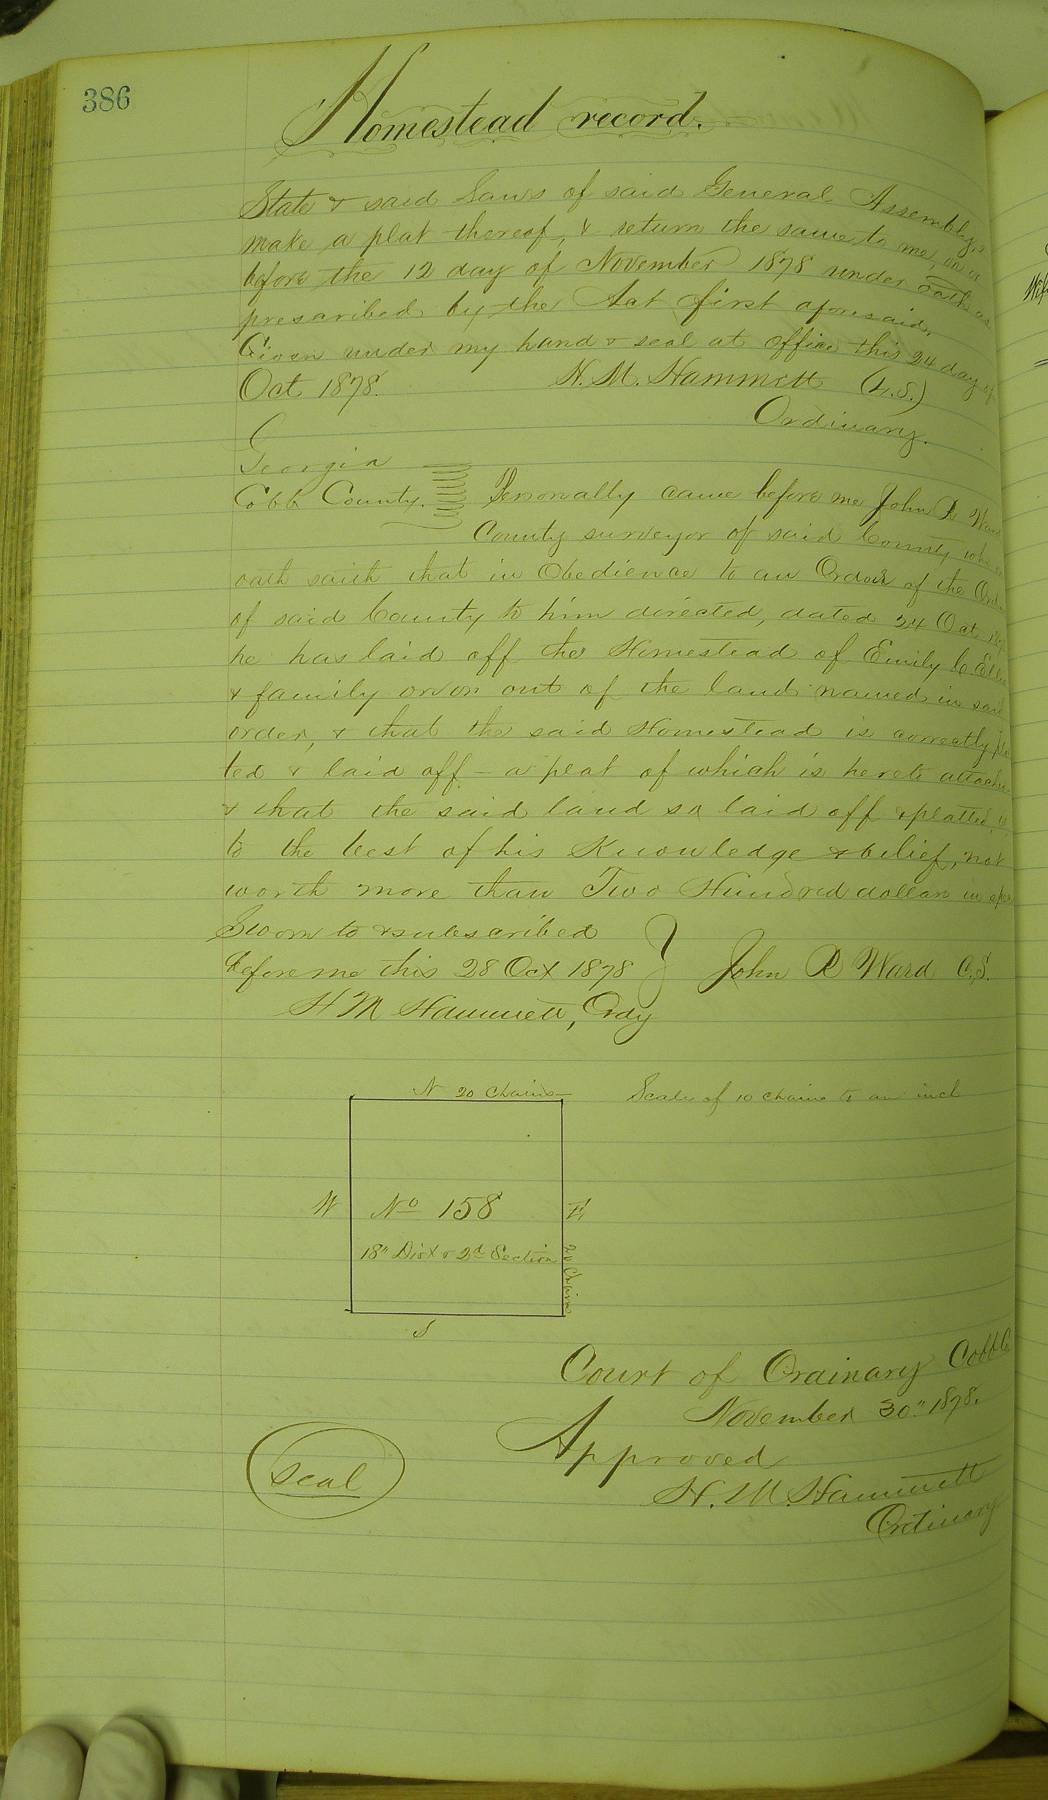 386
Homestead record.
State & said Laws of said General Assembly,
make a plat thereof, & return the same to me, on or
before the 12 day of November 1878 under oath as
prescribed by the Act first aforesaid,
Given under my hand & seal at office this 24 day of
Oct 1878. H. M. Hammett (L.S.)
Ordinary.
Georgia
Cobb County. Personally came before me John R Ward
County surveyor of said County who
oath saith that in Obedience to an Order of the
of said County to him directed, dated 24 Oct
he has laid off the Homestead of Emily C
& family on or out of the land named in said
order, & that the said Homestead is correctly plat
ted & laid off - a plat of which is hereto attached
& that the said land so laid off & platted, is,
to the best of his Knowledge & belief, not
worth more than Two Hundred dollars in
Sworn to & subscribed
before me this 28 Oct 1878 John R Ward C.S.
H M Hammett, Ordy
N 20 Chains Scale of 10 chains to an inch
W No 158 E
18" Dist & 2d Section 20 Chains
S
Court of Ordinary Cobb Co
November 30" 1878.
Approved
seal H. M. Hammett
Ordinary